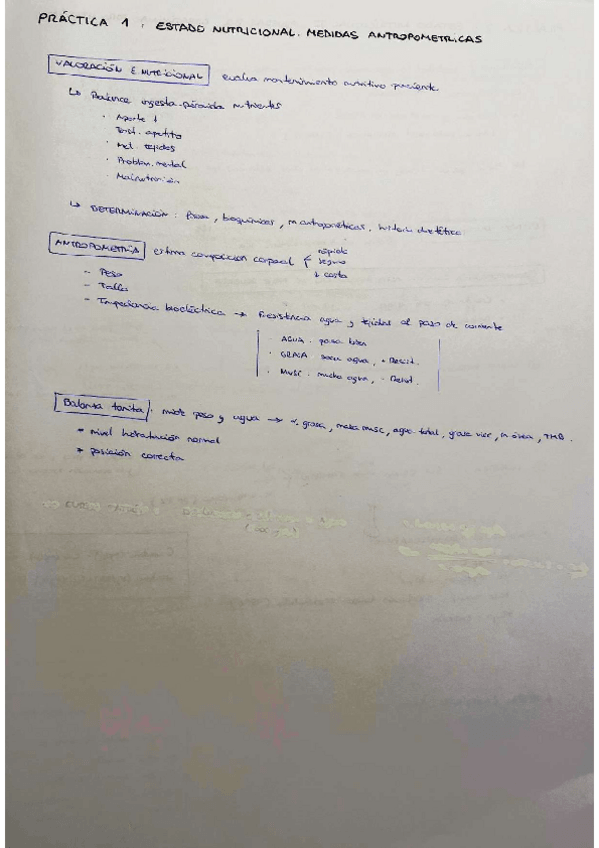 PRÁCTICA 1 : ESTADO NUTRICIONAL. MEDIDAS ANTROPOMETRICAS
VALORACIÓN E NUTRICIONAL evalua mantenimiento nutritivo paciente
↳ Balance ingesta-pérdida nutrientes
· Aporte ↓
Trast. apetito
· Met. tejidos
· Problm. mental
· Malnutrición
↳ DETERMINACIÓN : , bioquímicos, , dietético
ANTROPOMETRÍA estima composición corporal { rápida
segura
↓ costo
- Peso
- Talla
- Impedancia bioeléctrica → Resistencia agua y tejidos al paso de corriente
· AGUA . pasa bien
· GRASA . agua, + Resist.
· MUSC . mucho agua, - Resist.
Balanza tanita : mide peso y agua → % grasa, masa musc, agua total, grasa visc, m ósea, TMB.
* nivel hidratación normal
* posición correcta